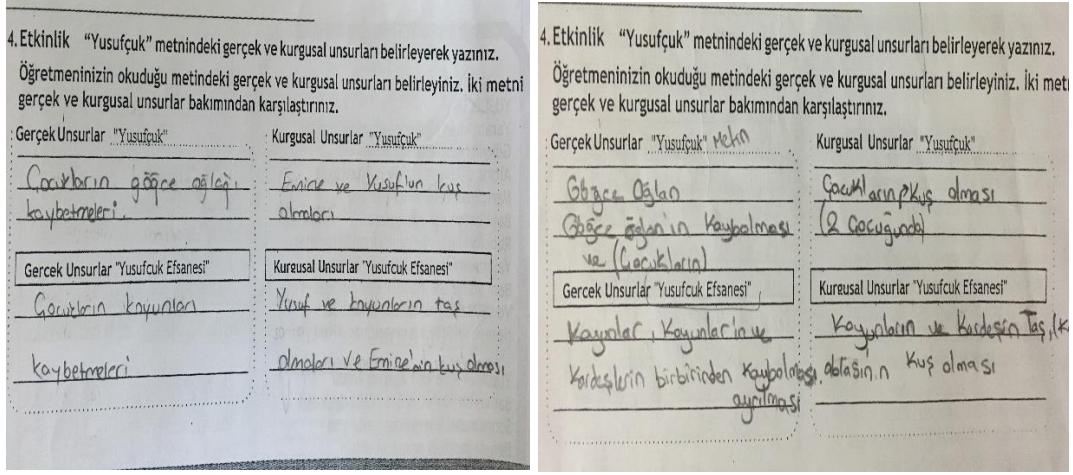 4. Etkinlik “Yusufçuk” metnindeki gerçek ve kurgusal unsurları belirleyerek yazınız.
Öğretmeninizin okuduğu metindeki gerçek ve kurgusal unsurları belirleyiniz. İki metni
gerçek ve kurgusal unsurlar bakımından karşılaştırınız.
Gerçek Unsurlar "Yusufçuk"
Çocukların göğçe oğlağı
kaybetmeleri.
Kurgusal Unsurlar "Yusufçuk"
Emine ve Yusuf'un kuş
olmaları
Gercek Unsurlar "Yusufcuk Efsanesi"
Çocukların koyunları
kaybetmeleri
Kurgusal Unsurlar "Yusufcuk Efsanesi"
Yusuf ve koyunların taş
olmaları ve Emine'nin kuş olması
4. Etkinlik “Yusufçuk” metnindeki gerçek ve kurgusal unsurları belirleyerek yazınız.
Öğretmeninizin okuduğu metindeki gerçek ve kurgusal unsurları belirleyiniz. İki met
gerçek ve kurgusal unsurlar bakımından karşılaştırınız.
Gerçek Unsurlar "Yusufçuk" Metin
Göğçe Oğlan
Göğçe oğlan'ın Kaybolması
ve (Çocukların)
Kurgusal Unsurlar "Yusufçuk"
Çocukların Kuş olması
(2 Çocuğunda)
Gercek Unsurlar "Yusufcuk Efsanesi"
Koyunlar, Koyunlar'ın ve
Kardeşlerin birbirinden Kaybolması,
ayrılması
Kurgusal Unsurlar "Yusufcuk Efsanesi"
Koyunların ve Kardeşin Taş,
ablasının Kuş olması